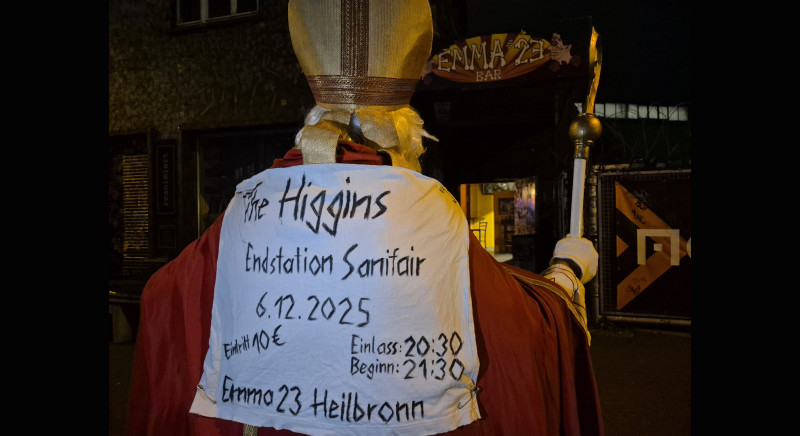 EMMA 23
BAR
The Higgins
Endstation Sanifair
6.12.2025
Eintritt 10€
Einlass: 20:30
Beginn: 21:30
Emma 23 Heilbronn